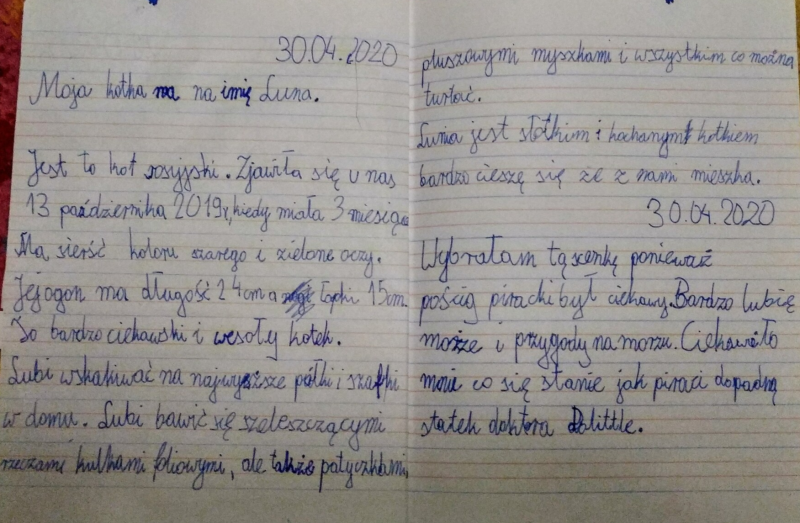 30.04.2020
Moja kotka ma na imię Luna.
Jest to kot rosyjski. Zjawiła się u nas
13 października 2019r, kiedy miała 3 miesiące
Ma sierść koloru szarego i zielone oczy.
Jej ogon ma długość 24cm a łapki 15cm.
To bardzo ciekawski i wesoły kotek.
Lubi wskakiwać na najwyższe półki i szafki
w domu. Lubi bawić się szeleszczącymi
rzeczami kulkami foliowymi, ale także patyczkami,
pluszowymi myszkami i wszystkim co można
turlać.
Luna jest słotkim i kochanym kotkiem
bardzo cieszę się że z nami mieszka.
30.04.2020
Wybrałam tą scenkę ponieważ
pościg piracki był ciekawy. Bardzo lubię
morze i przygody na morzu. Ciekawiło
mnie co się stanie jak piraci dopadną
statek doktora Dolittle.